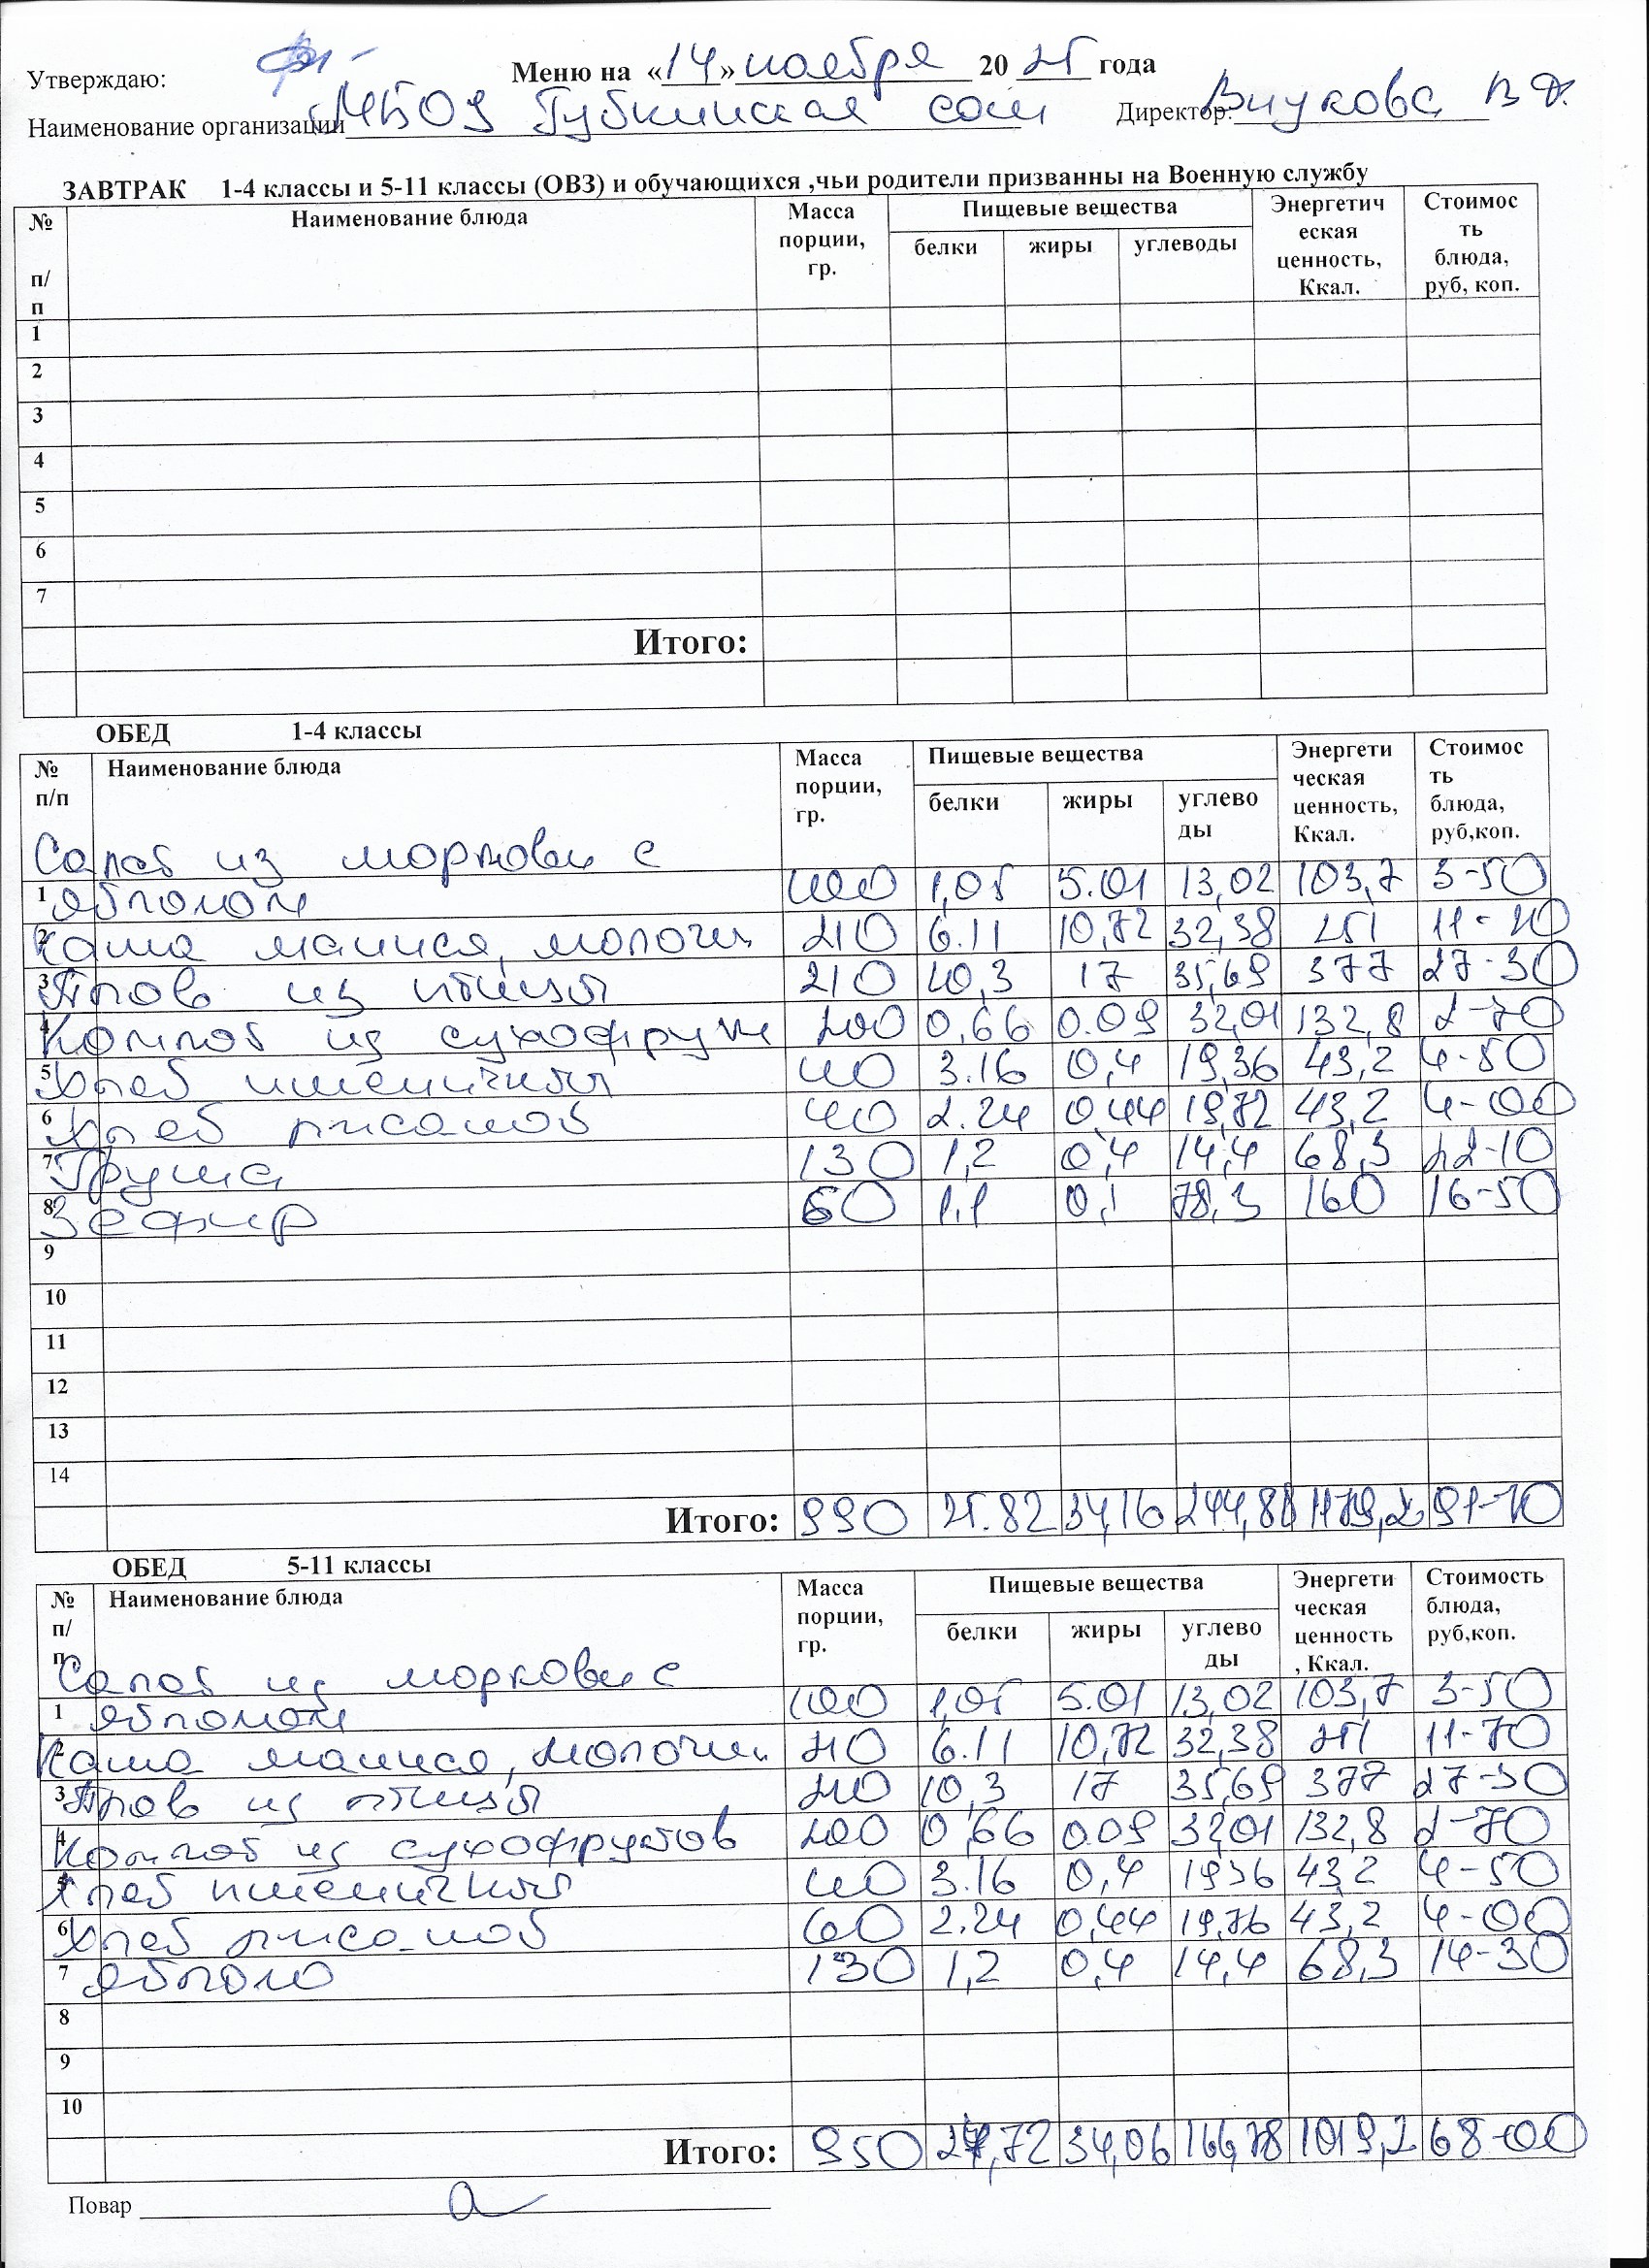 Утверждаю:
Меню на «14» ноября 20 25 года
Наименование организации МБОУ Губкинская сош Директор: Внукова В
ЗАВТРАК 1-4 классы и 5-11 классы (ОВЗ) и обучающихся ,чьи родители призванны на Военную службу
№ п/п Наименование блюда Масса порции, гр. Пищевые вещества Энергетическая ценность, Ккал. Стоимость блюда, руб, коп.
белки жиры углеводы
1
2
3
4
5
6
7
Итого:
ОБЕД 1-4 классы
№ п/п Наименование блюда Масса порции, гр. Пищевые вещества Энергетическая ценность, Ккал. Стоимость блюда, руб,коп.
белки жиры углеводы
Салат из моркови с
1 яблоком 100 1,05 5.01 13,02 103,7 3-50
2 Каша манная, молочн 210 6.11 10,72 32,38 251 11-70
3 Плов из птицы 210 10,3 17 35,69 377 27-30
4 Компот из сухофрукт 200 0,66 0.09 32,01 132,8 2-70
5 Хлеб пшеничный 40 3.16 0,4 19,36 43,2 4-50
6 Хлеб ржаной 40 2.24 0,44 19,72 43,2 4-00
7 Груша 130 1,2 0,4 14,4 68,3 22-10
8 Зефир 60 1,1 0,1 78,3 160 16-50
9
10
11
12
13
14
Итого: 990 25.82 34,16 244,88 1179,2 91-70
ОБЕД 5-11 классы
№ п/п Наименование блюда Масса порции, гр. Пищевые вещества Энергетическая ценность, Ккал. Стоимость блюда, руб,коп.
белки жиры углеводы
Салат из моркови с
1 яблоком 100 1,05 5.01 13,02 103,7 3-50
Каша манная, молочн. 210 6.11 10,72 32,38 251 11-70
3 Плов из птицы 210 10,3 17 35,69 377 27-30
4 Компот из сухофруктов 200 0,66 0.09 32,01 132,8 2-70
5 Хлеб пшеничный 40 3.16 0,4 19,36 43,2 4-50
6 Хлеб ржаной 60 2.24 0,44 19,76 43,2 4-00
7 яблоко 130 1,2 0,4 14,4 68,3 14-30
8
9
10
Итого: 950 24,72 34,06 166,78 1019,2 68-00
Повар